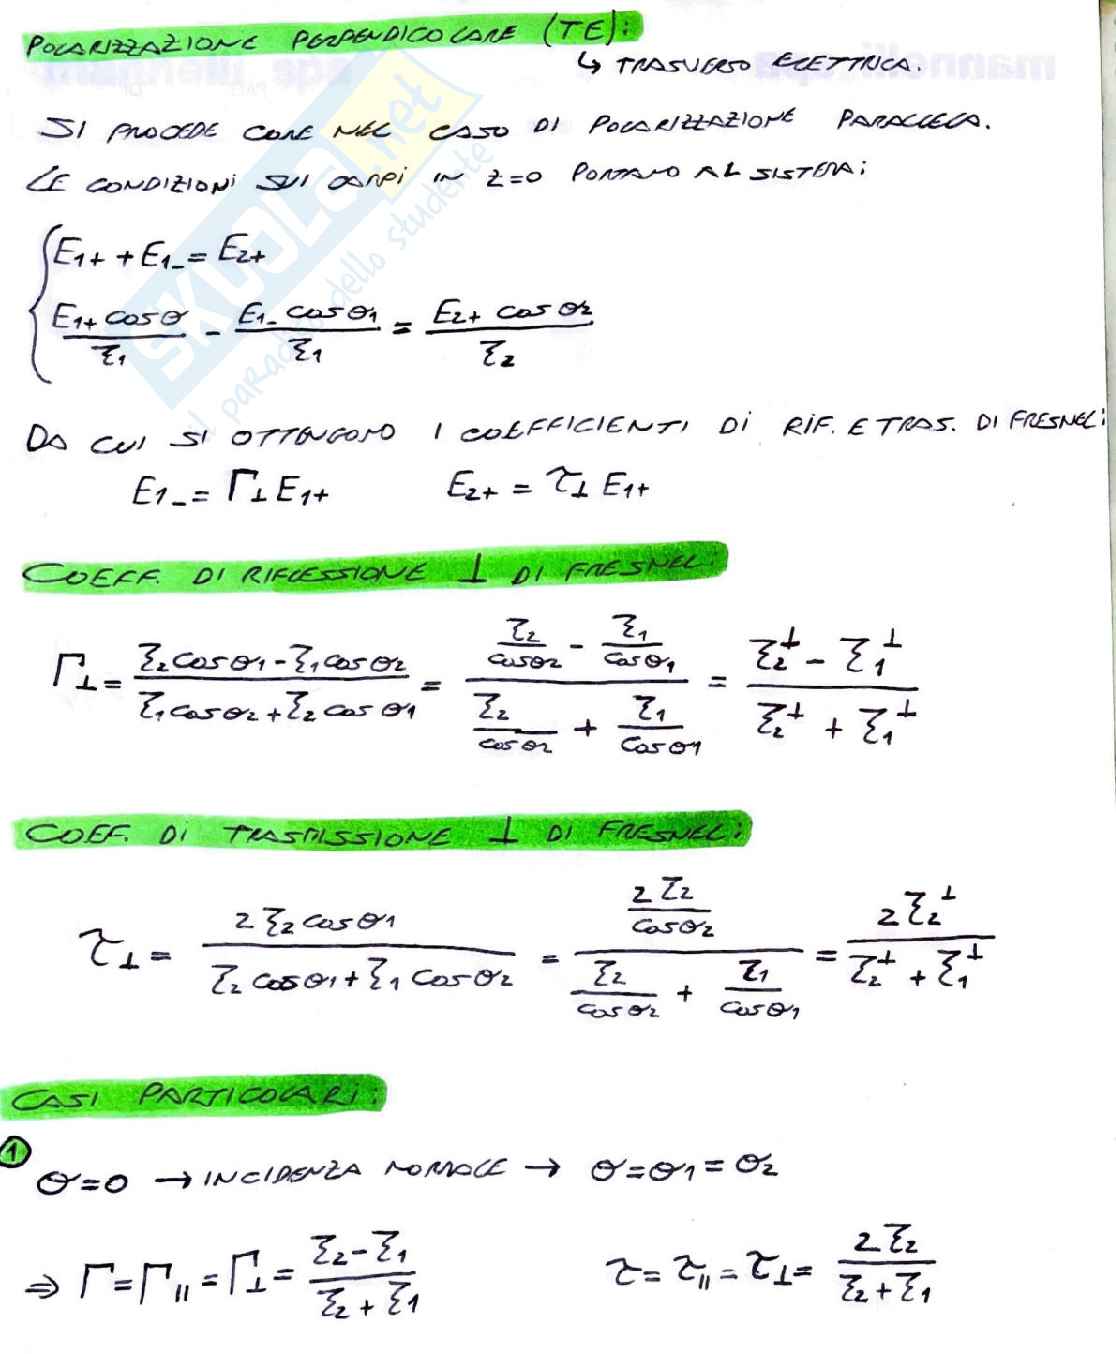 POLARIZZAZIONE PERPENDICOLARE (TE):
↳ TRASVERSO ELETTRICA.
SI PROCEDE COME NEL CASO DI POLARIZZAZIONE PARALLELA.
LE CONDIZIONI SUI CAMPI IN Z=0 PORTANO AL SISTEMA:
{ E1+ + E1- = E2+
E1+ cosθ / ξ1 - E1- cosθ1 / ξ1 = E2+ cosθ2 / ξ2
DA CUI SI OTTENGONO I COEFFICIENTI DI RIF. E TRAS. DI FRESNEL:
E1- = Γ⊥ E1+    E2+ = τ⊥ E1+
COEFF. DI RIFLESSIONE ⊥ DI FRESNEL:
Γ⊥ = (ξ2 cosθ1 - ξ1 cosθ2) / (ξ1 cosθ2 + ξ2 cosθ1) = (ξ2/cosθ2 - ξ1/cosθ1) / (ξ2/cosθ2 + ξ1/cosθ1) = (ξ2⊥ - ξ1⊥) / (ξ2⊥ + ξ1⊥)
COEFF. DI TRASMISSIONE ⊥ DI FRESNEL:
τ⊥ = 2 ξ2 cosθ1 / (ξ2 cosθ1 + ξ1 cosθ2) = (2 ξ2/cosθ2) / (ξ2/cosθ2 + ξ1/cosθ1) = 2 ξ2⊥ / (ξ2⊥ + ξ1⊥)
CASI PARTICOLARI:
1
θ=0 → INCIDENZA NORMALE → θ=θ1=θ2
⇒ Γ = Γ∥ = Γ⊥ = (ξ2 - ξ1) / (ξ2 + ξ1)    τ = τ∥ = τ⊥ = 2 ξ2 / (ξ2 + ξ1)
SKUOLA.net
il paradiso dello studente